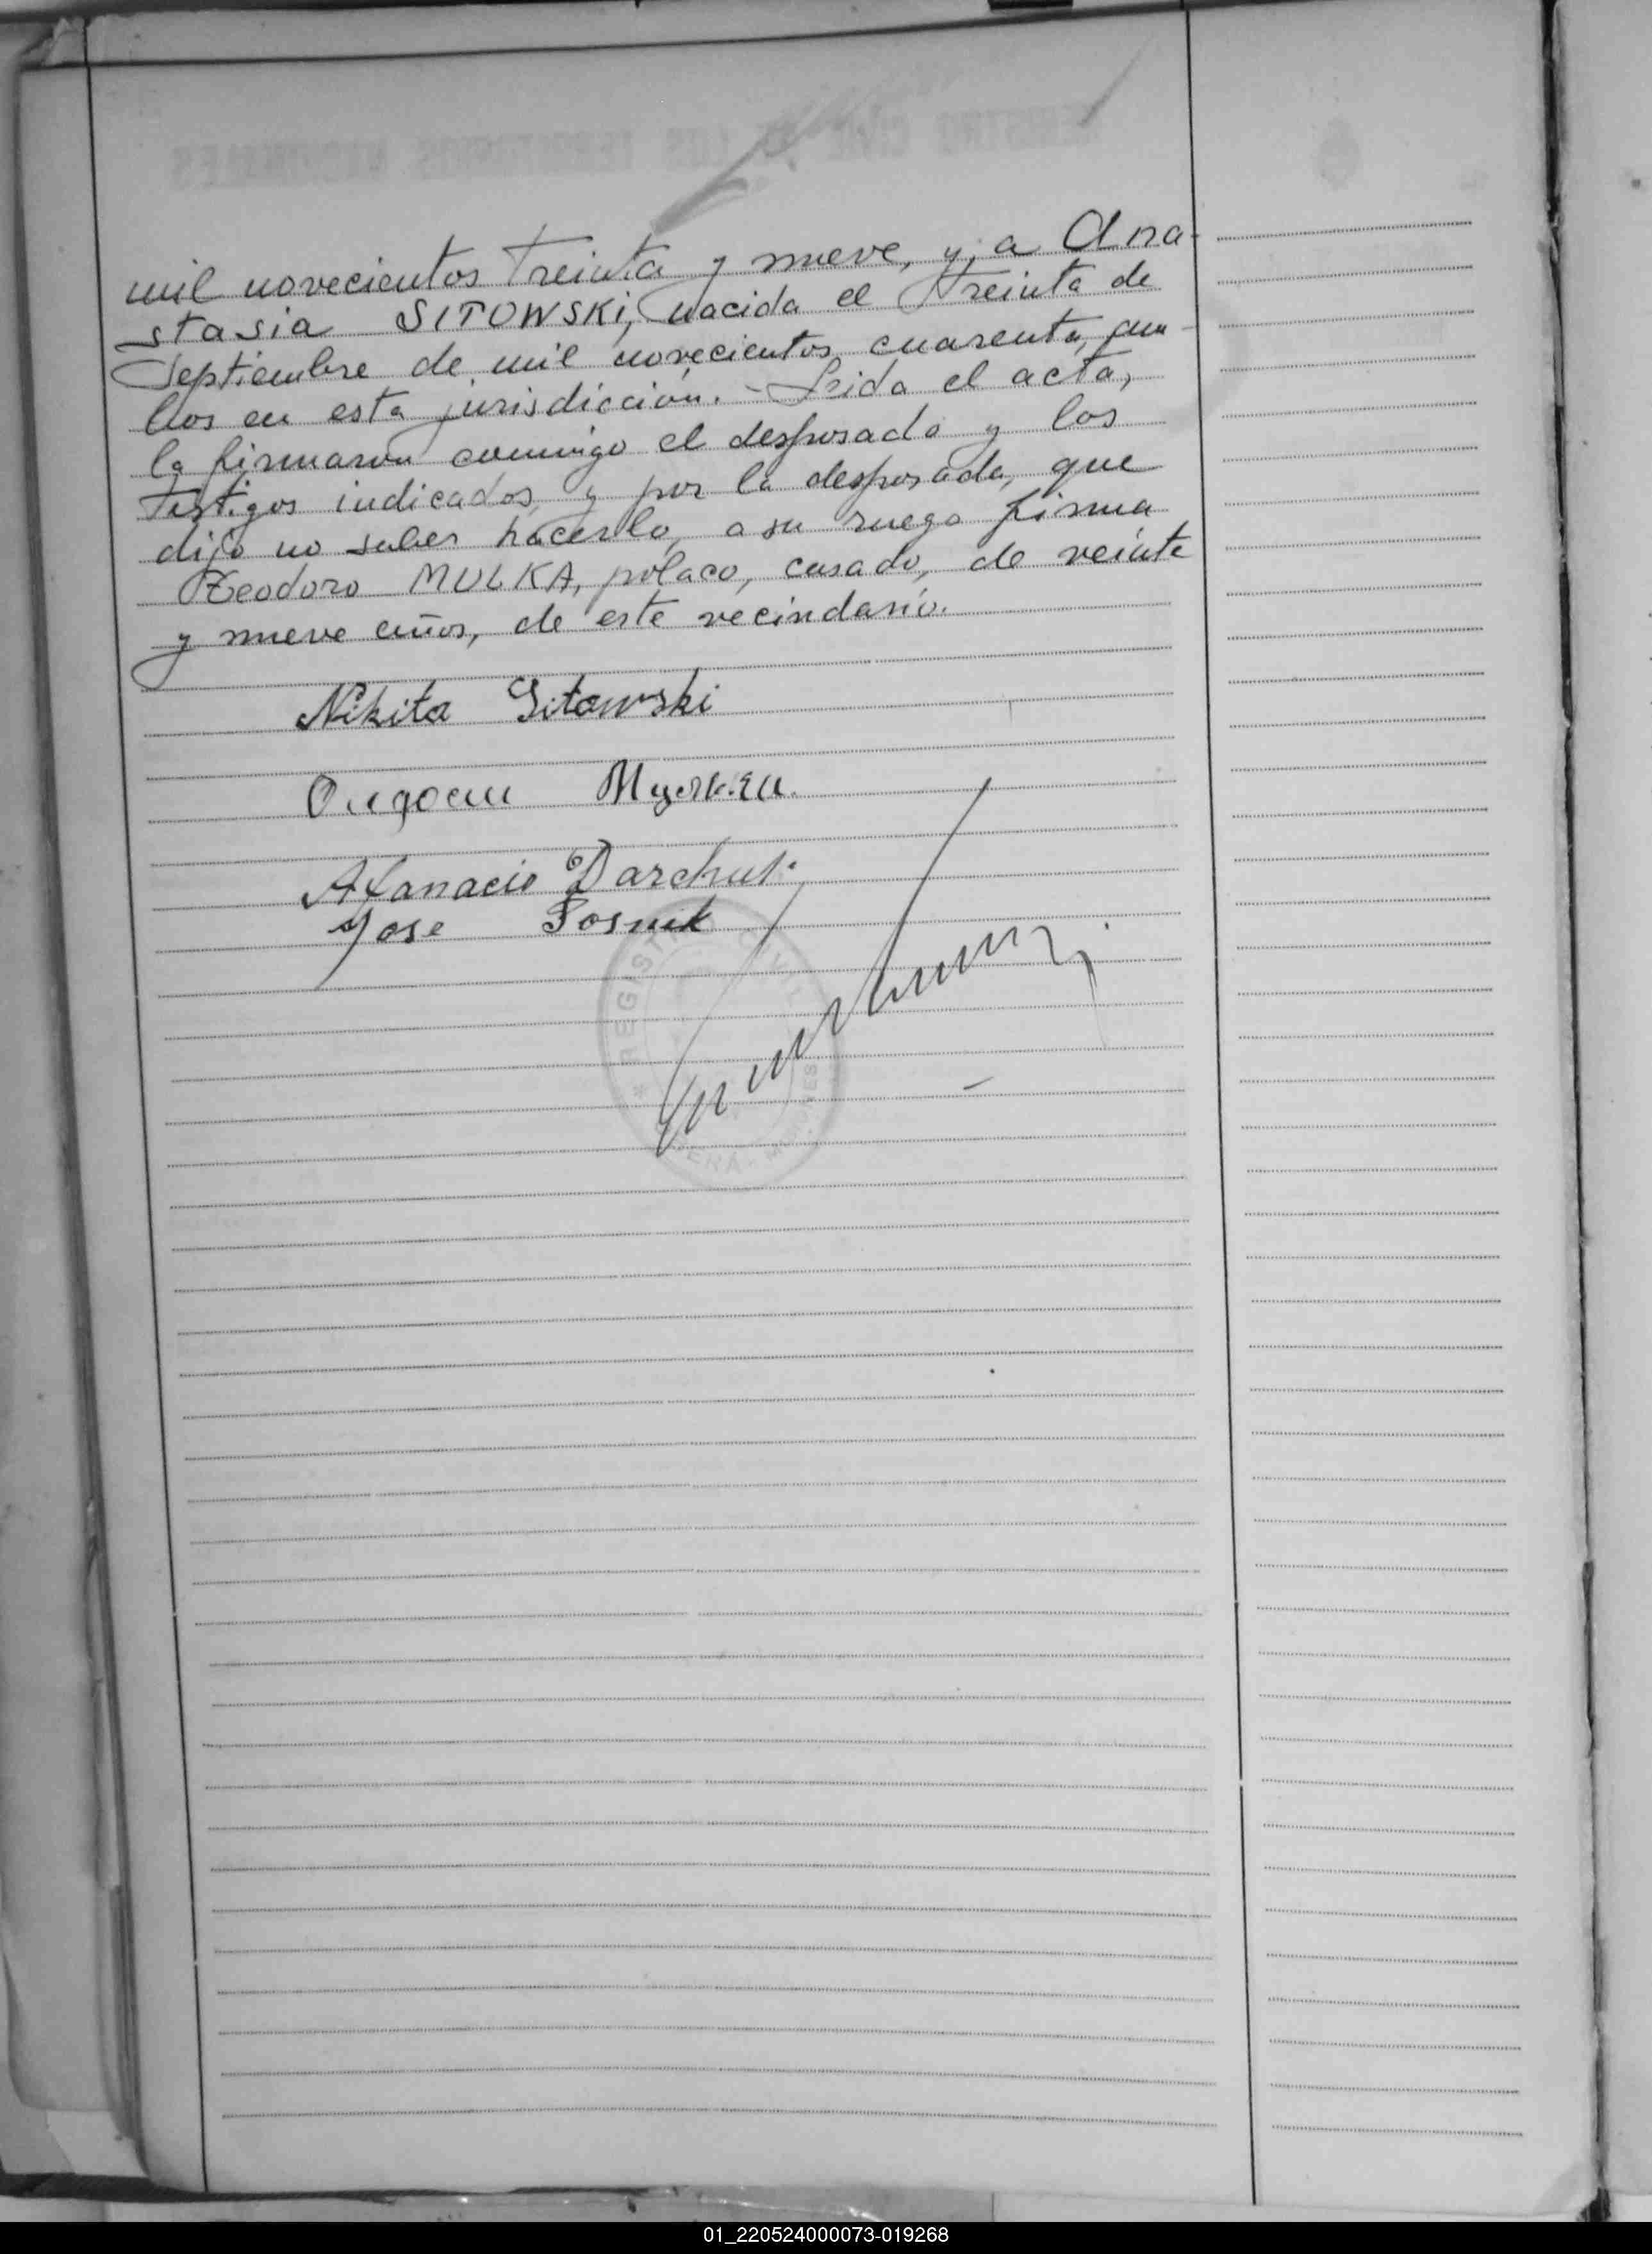 mil novecientos treinta y nueve, y, a Ana-
stasia SITOWSKI, nacida el treinta de
Septiembre de mil novecientos cuarenta, am-
bos en esta jurisdicción. - Leida el acta,
la firmaron conmigo el desposado y los
testigos indicados, y por la desposada, que
dijo no saber hacerlo, a su ruego firma
Teodoro MULKA, polaco, casado, de veinte
y nueve años, de este vecindario.
Nikita Sitowski
Afanacio Darchuk
Jose Posnik
REGISTRO CIVIL
MISIONES
01_220524000073-019268